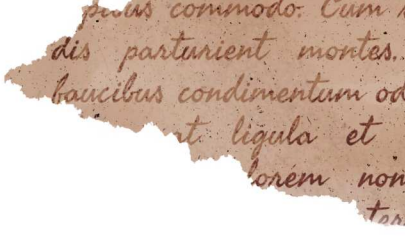 commodo. Cum
dis parturient montes.
faucibus condimentum od
at ligula et
lorem non
ter